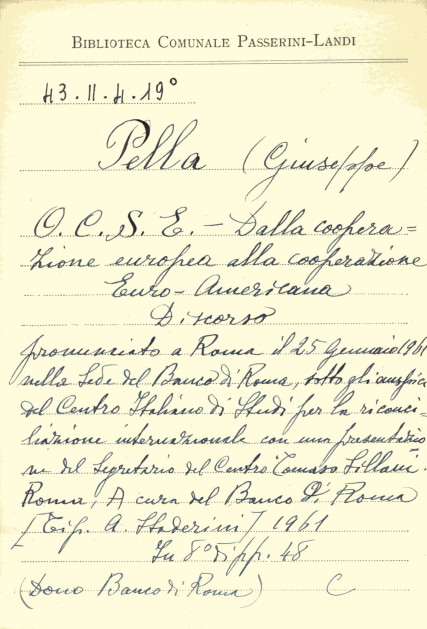 BIBLIOTECA COMUNALE PASSERINI-LANDI
43.II.4.19°
Pella (Giuseppe)
O.C.S.E. - Dalla coopera=
zione europea alla cooperazione
Euro-Americana
Discorso
pronunciato a Roma il 25 Gennaio 1961
nella Sede del Banco di Roma, sotto gli auspici
del Centro Italiano di Studi per la riconci-
liazione internazionale con una presentazio
ne del Segretario del Centro Tomaso Sillani.
Roma, A cura del Banco di Roma
[Tip. A. Staderini] 1961
In 8° di pp. 48
(Dono Banco di Roma) C